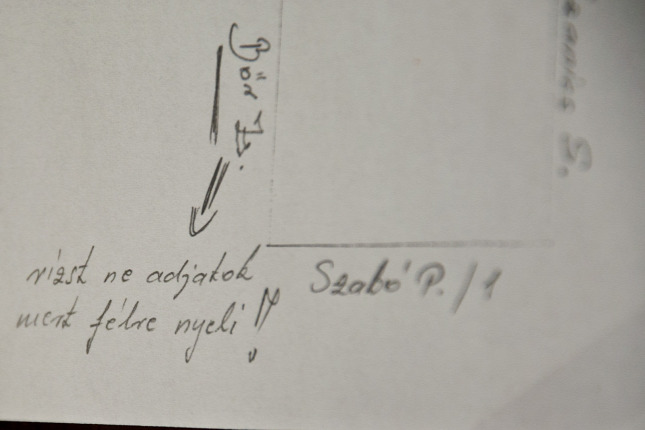 Bör
vizet ne adjatok
mert félre nyeli !!
Szabó P. / 1
S.